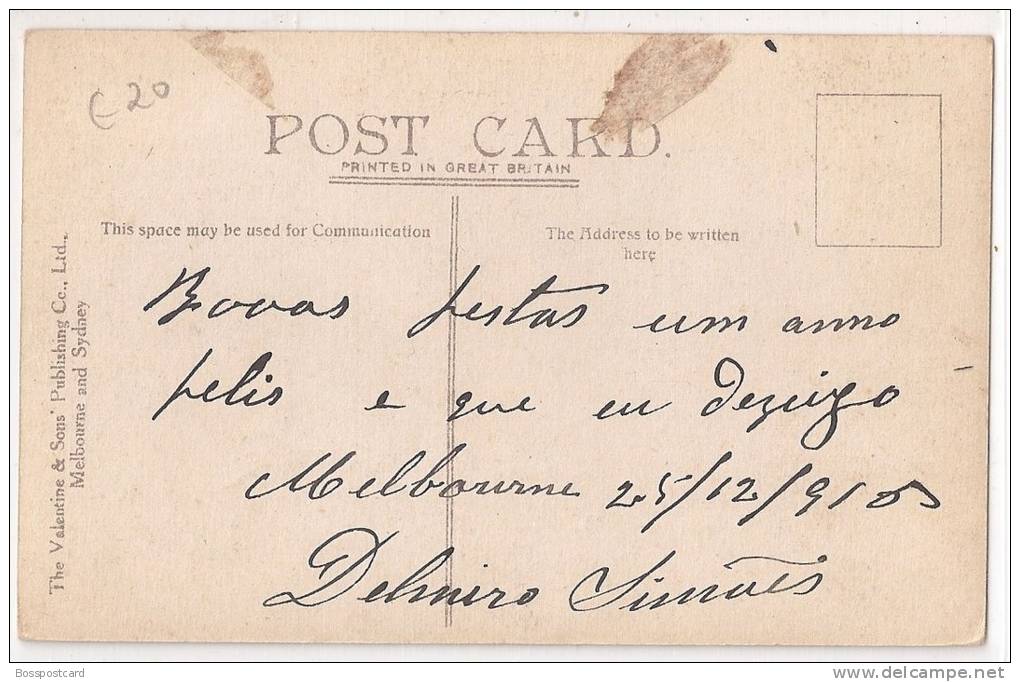 €20
POST CARD.
PRINTED IN GREAT BRITAIN
This space may be used for Communication
The Address to be written
here
The Valentine & Sons' Publishing Co., Ltd.,
Melbourne and Sydney
Booas festas um anno
felis e que eu dezeigo
Melbourne 25/12/910
Delmiro Simões
Bosspostcard
www.delcampe.net